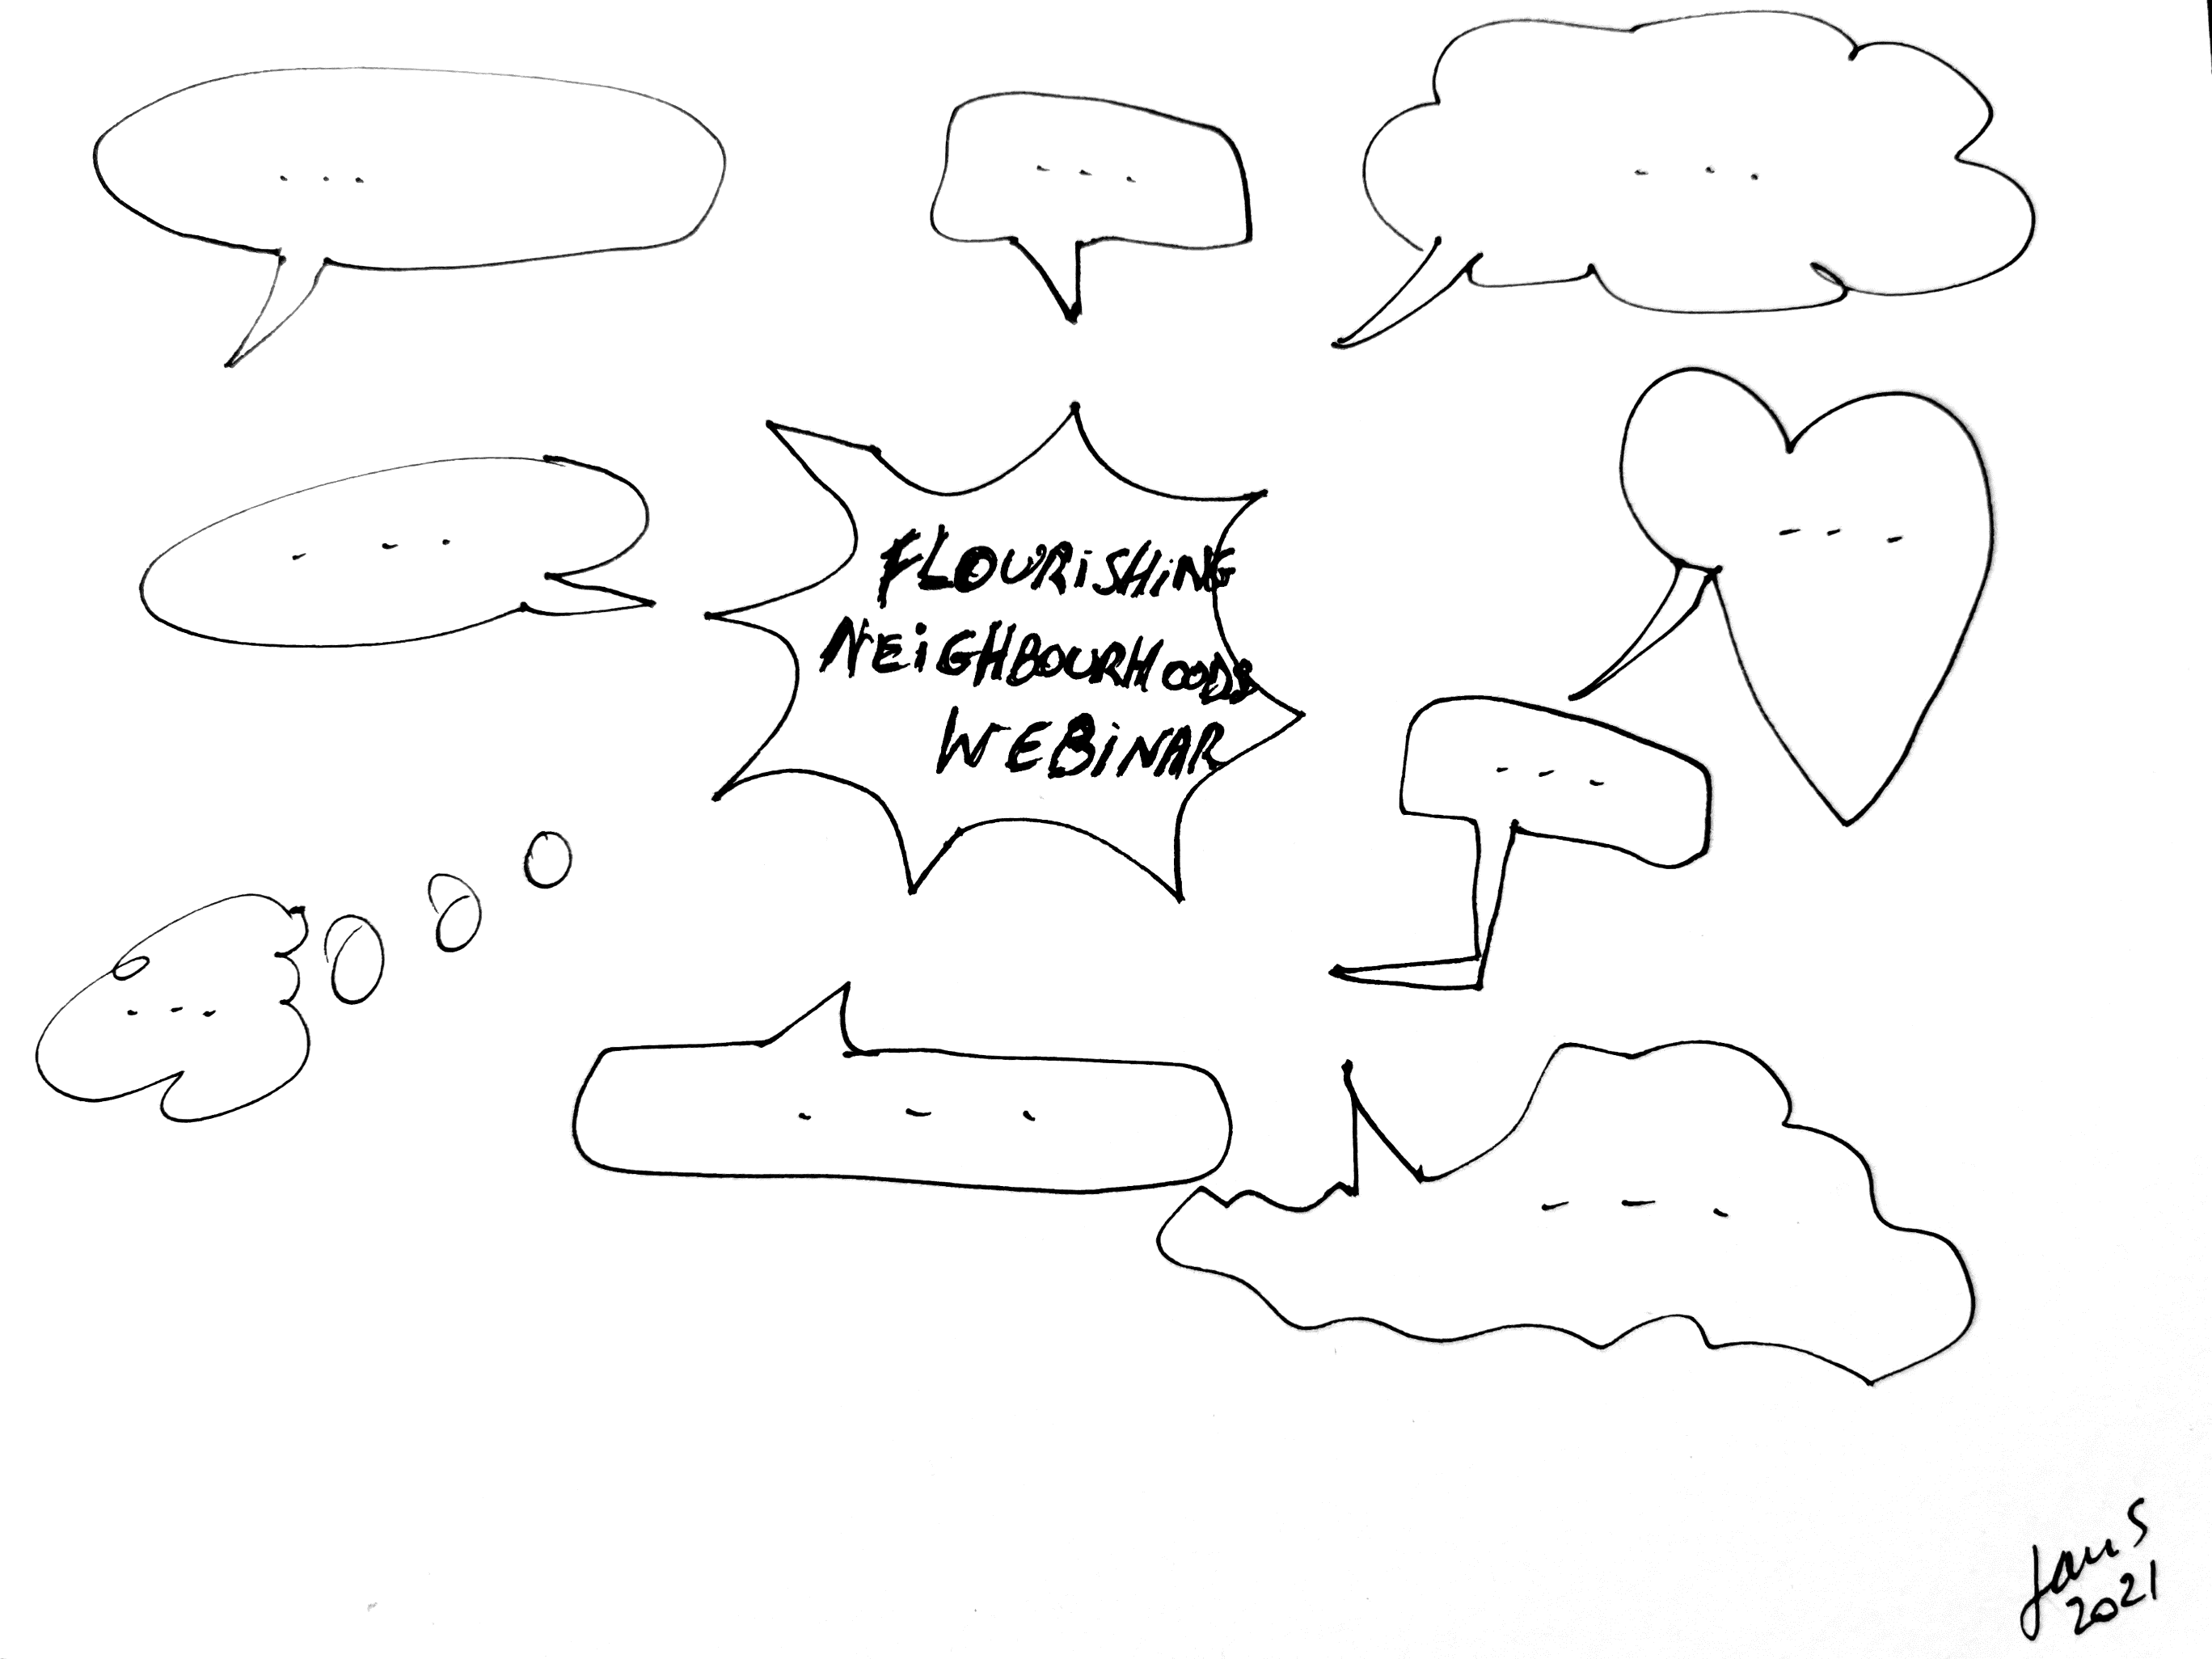 ...
...
...
...
...
FLOURiSHiNG
NEiGHBOURHOODS
WEBiNAR
...
...
...
...
2021